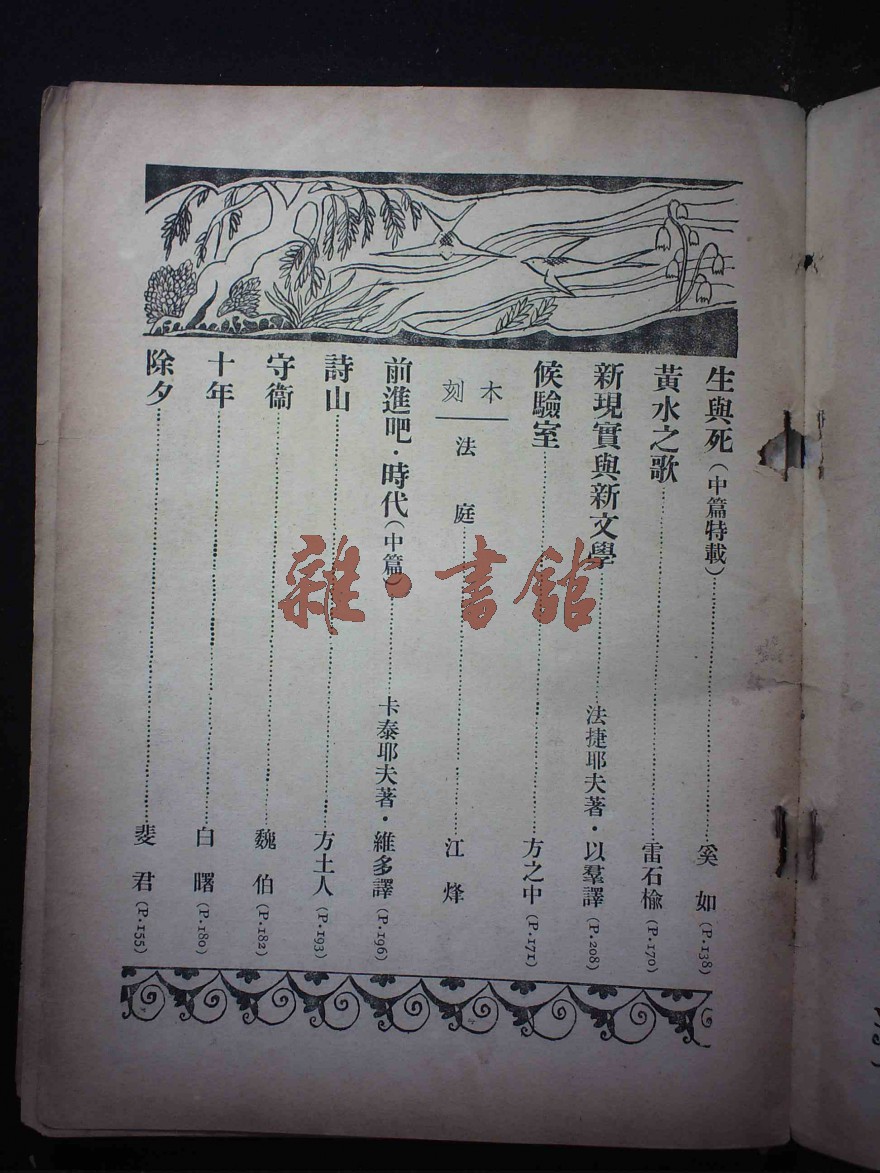 生與死（中篇特載）……奚　如（P.138）
黃水之歌……雷石楡（P.170）
新現實與新文學……法捷耶夫著・以羣譯（P.208）
候驗室……方之中（P.171）
木刻
法　庭……江　烽
前進吧・時代（中篇）……卡泰耶夫著・維多譯（P.196）
詩山……方土人（P.193）
守衞……魏　伯（P.182）
十年……白　曙（P.180）
除夕……斐　君（P.155）
雜・書館